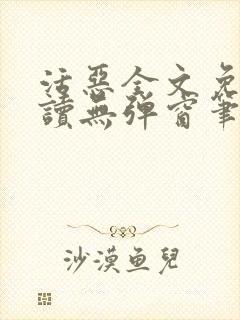 活惡全文免
讀無彈窗筆
沙漠魚兒